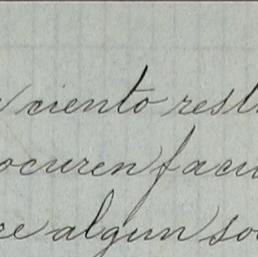 ciento rest
ocuren facu
re algun so